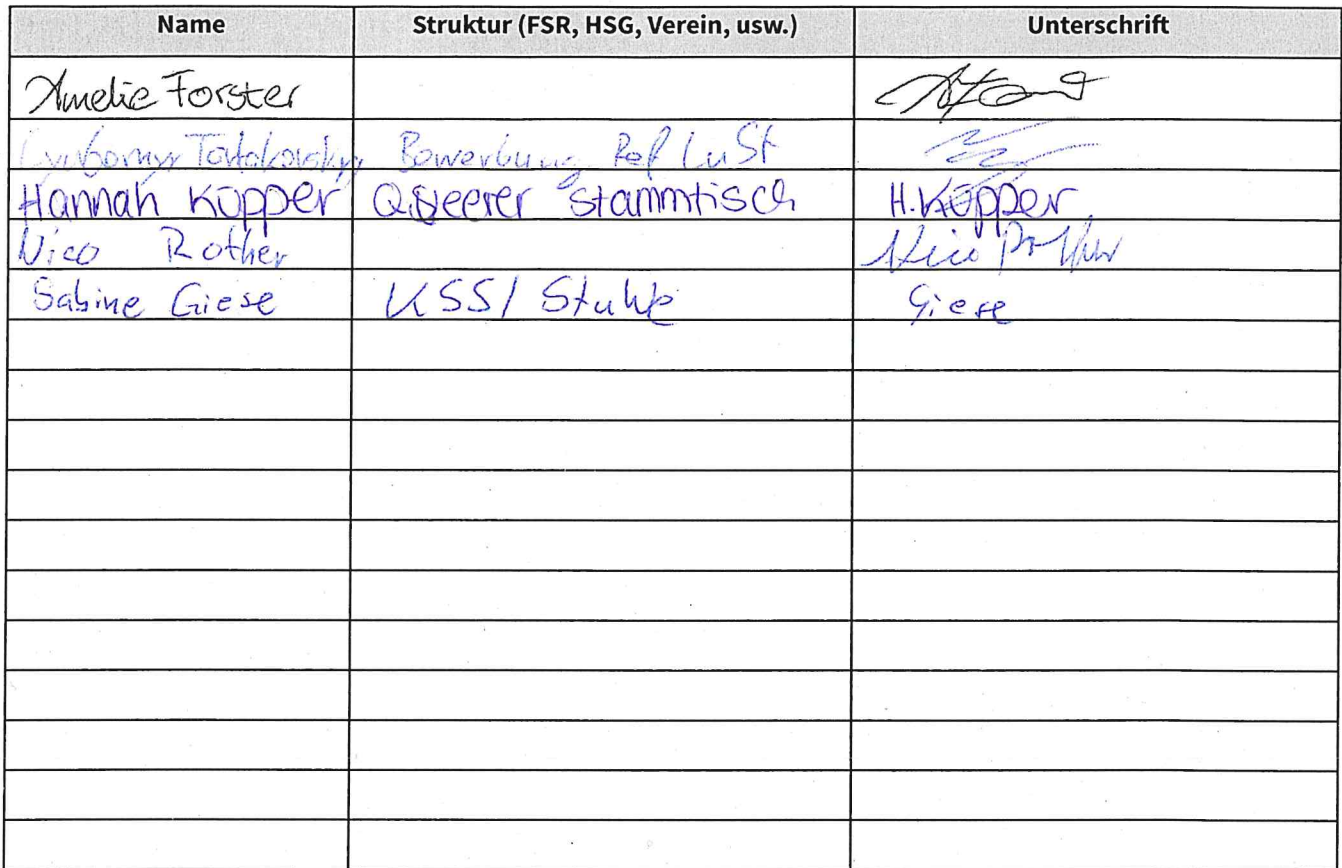 Name Struktur (FSR, HSG, Verein, usw.) Unterschrift
Amelie Forster
Bewerbung Ref LuSt
Hannah Küpper Queerer Stammtisch H. Küpper
Nico Rother Nico Rother
Sabine Giese KSS/ Giese